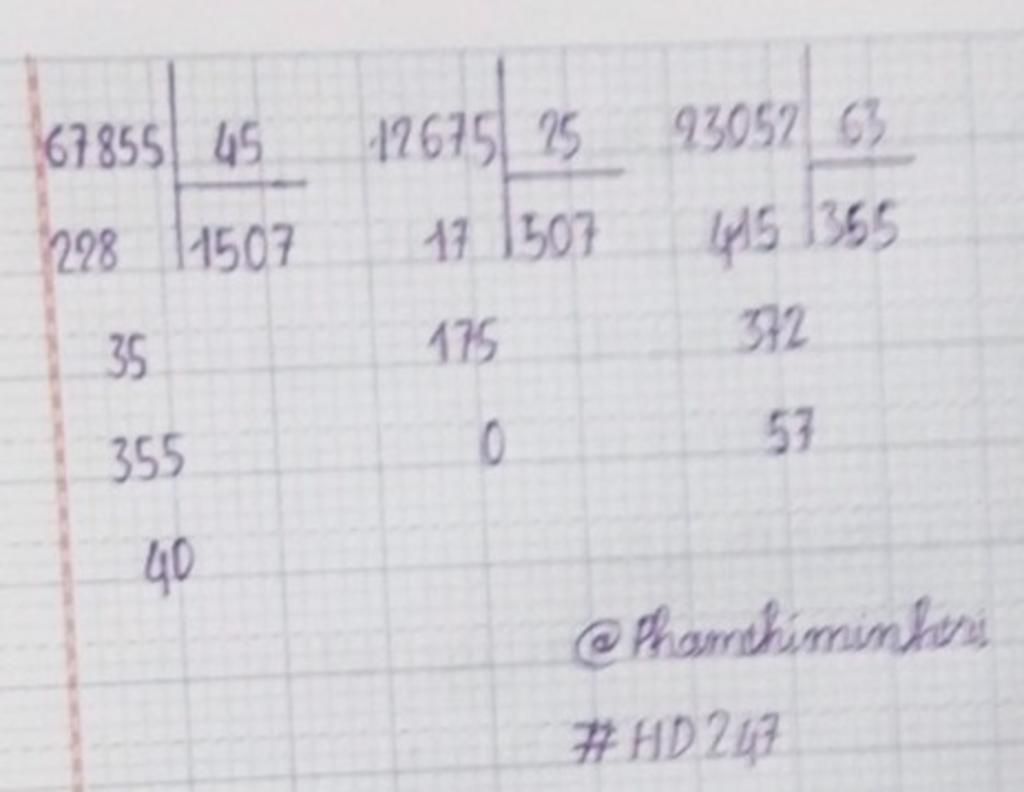 67855 45 12675 25 23052 63
228 1507 17 507 415 355
35 175 372
355 0 57
40
#HD247